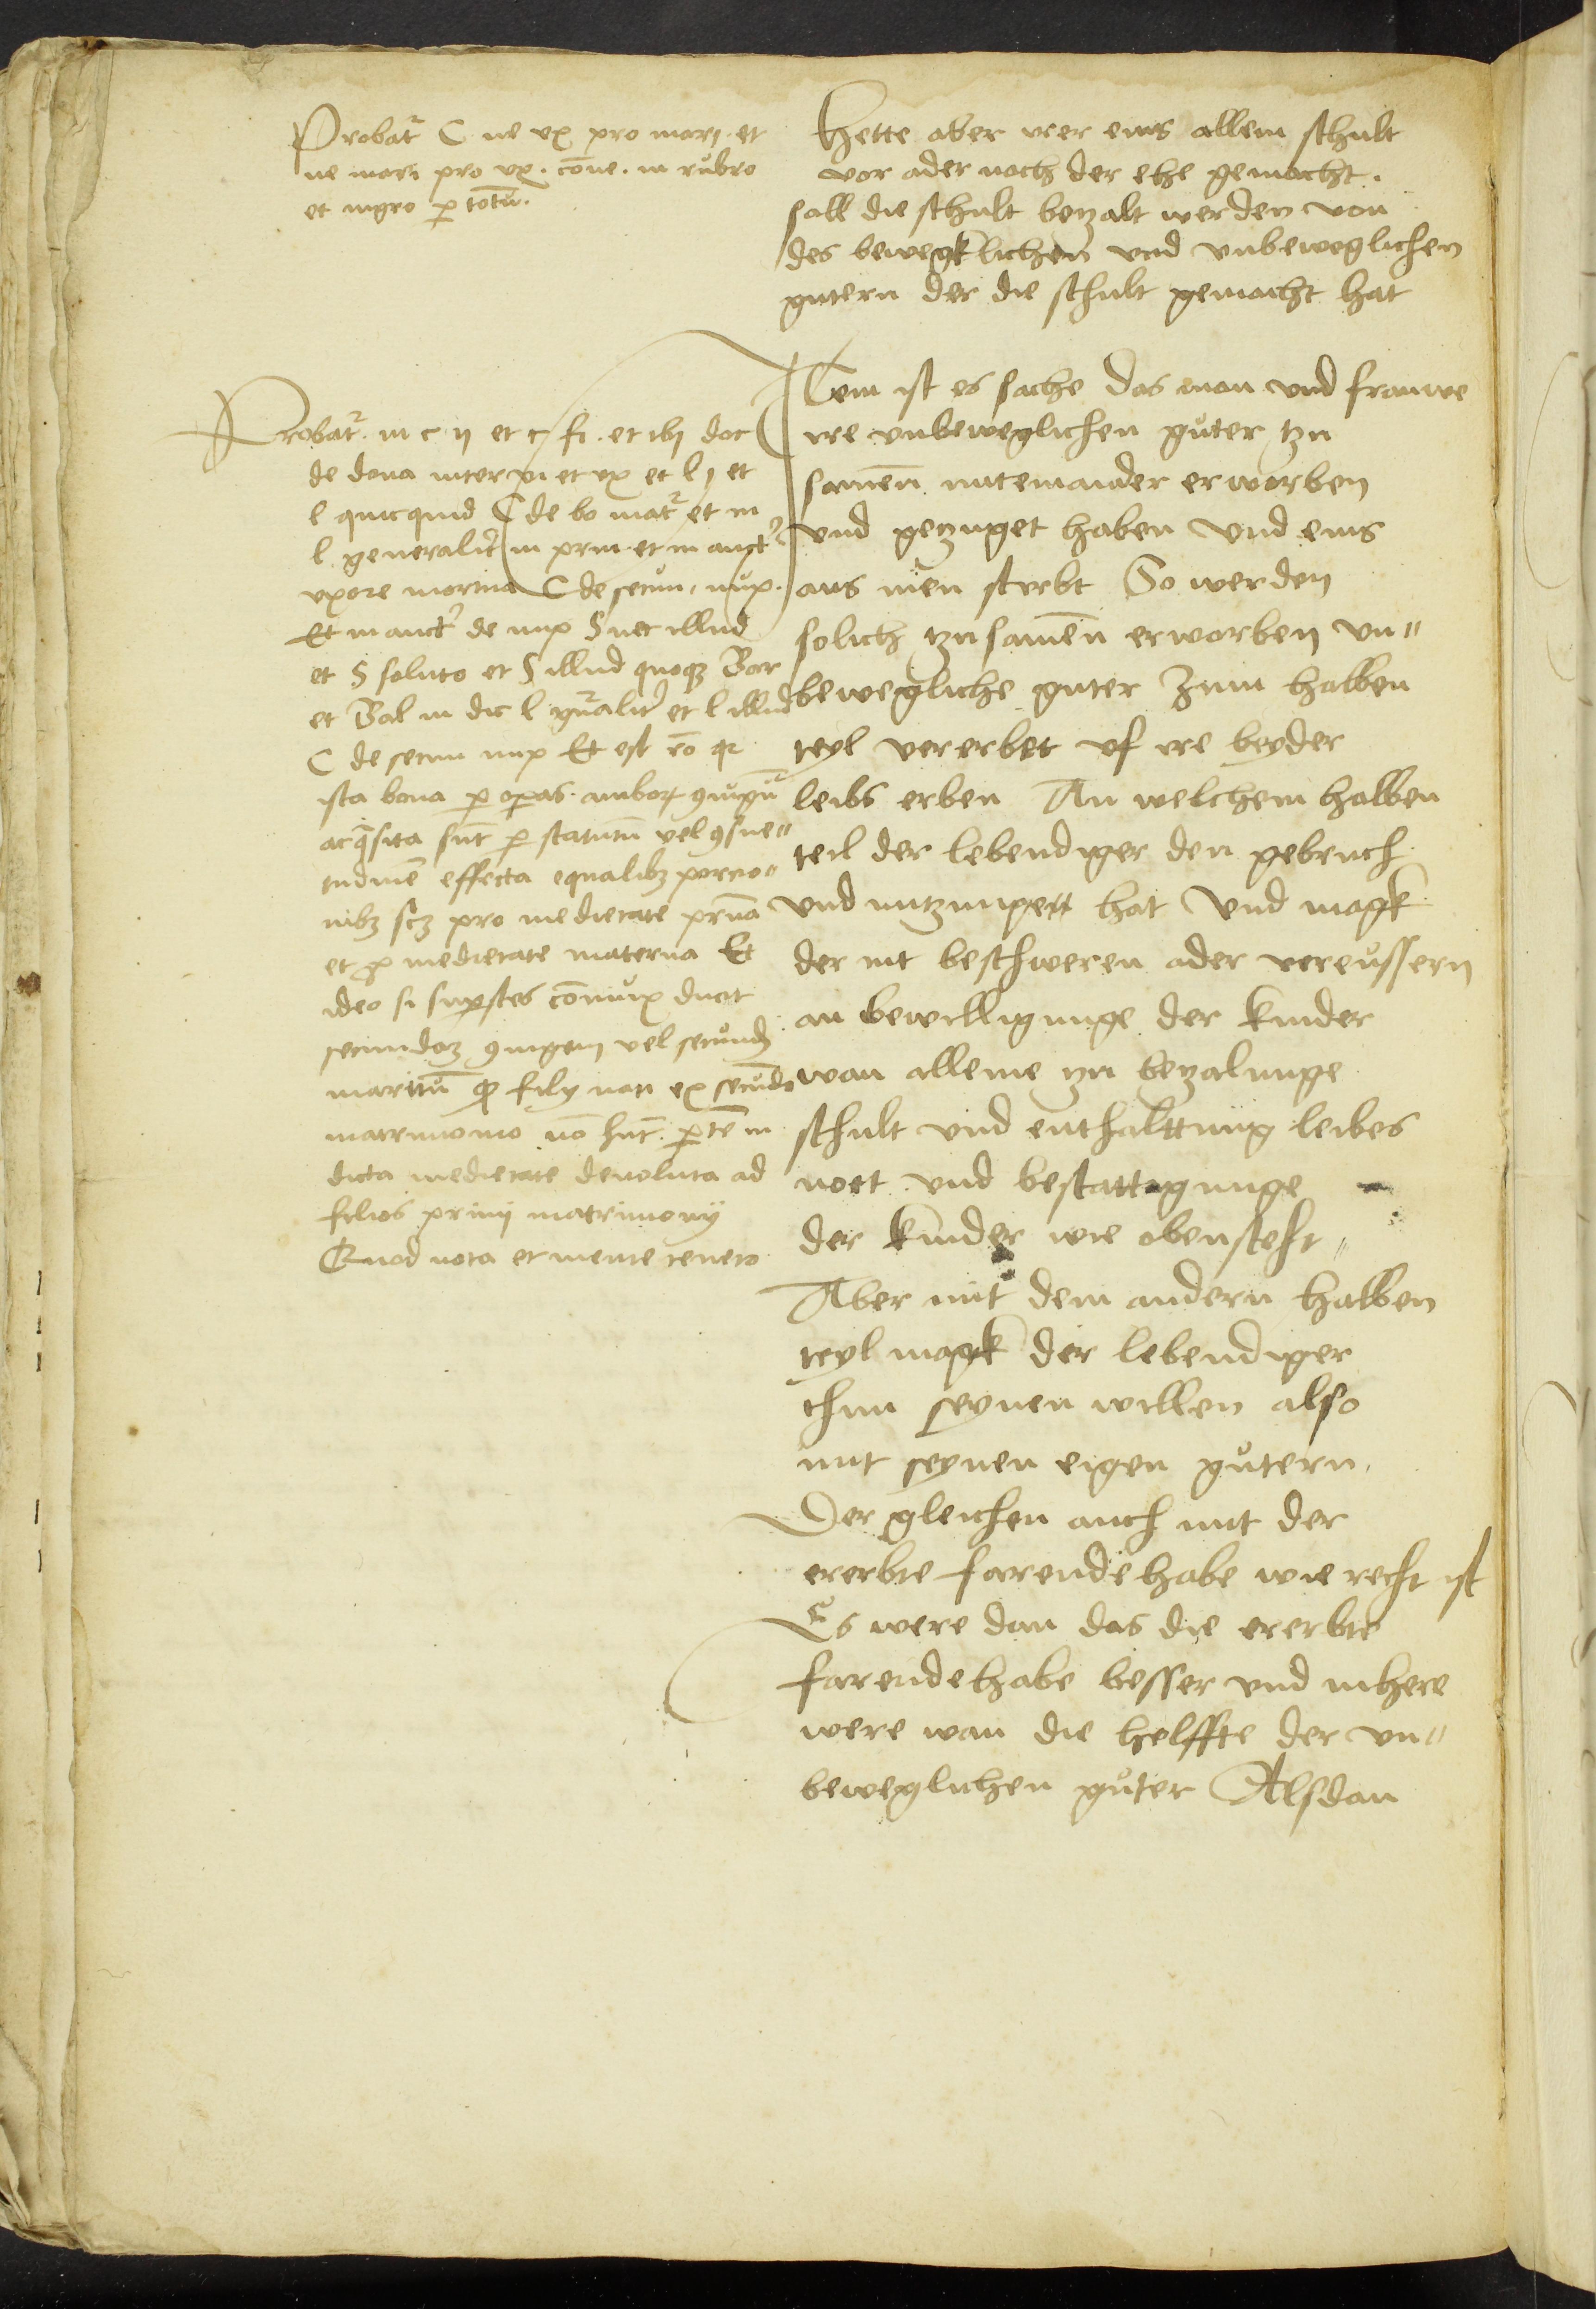 Probatr C ne ux pro mari et
ne mari pro ux. cone. in rubro
et nigro p totu.
Hette aber irer eins allein schult
vor ader noch der ehe gemacht.
soll die schult betzalt werden von
des bewegklichen vnd vnbeweglichen
gutern der die schult gemacht hat
Probatr. in c. ij et c fi. et ibj doc
de dona inter vi et ux et l j et
l quicquid C de bo matr et in
l. generalitr in prin et in auctr
uxore mortua C de secun. nup.
Et in auctr de nup § nec illud
et § soluto et § illud quoqz Bar
et Bal in dic l gnralitr et l illud
C de secun nup Et est ro qr
ista bona p opas amborum 9iugu
acqsita sunt p statutu vel 9sue"
tudine effecta equalibz porcio"
nibz scz pro medietate prna
et p medietate materna Et
ideo si supstes coniux ducit
secundaz 9iugem vel secundz
maritu q filij nati ex secundo
matrimonio no hnt pte in
dicta medietate deuoluta ad
filios primj matrimonij
Quod nota et mente teneto
Item ist es sache das man vnd frauwe
ire vnbeweglichen guter tzu
samen miteinander erworben
vnd getzuget haben vnd eins
aus inen stirbt So werden
solich tzusamen erworben vn"
bewegliche guter Zum halben
teyl vererbet vf ire beyder
leibs erben An welchem halben
teil der lebendiger den gebruch
vnd nutzungen hat vnd magk
der nit beschweren ader vereussern
an bewilligunge der kinder
wan alleine zu bezalunge
schult vnd enthalttung leibes
noet vnd bestattigunge
der kinder wie obensteht"
Aber mit dem andern halben
teyl magk der lebendiger
thun seynen willen also
mit seynen eigen gutern.
Der gleichen auch mit der
ererbte farende habe wie recht ist
Es were dan das die ererbte
farende habe besser vnd mhere
were wan die helffte der vn"
beweglichen guter Alsdan